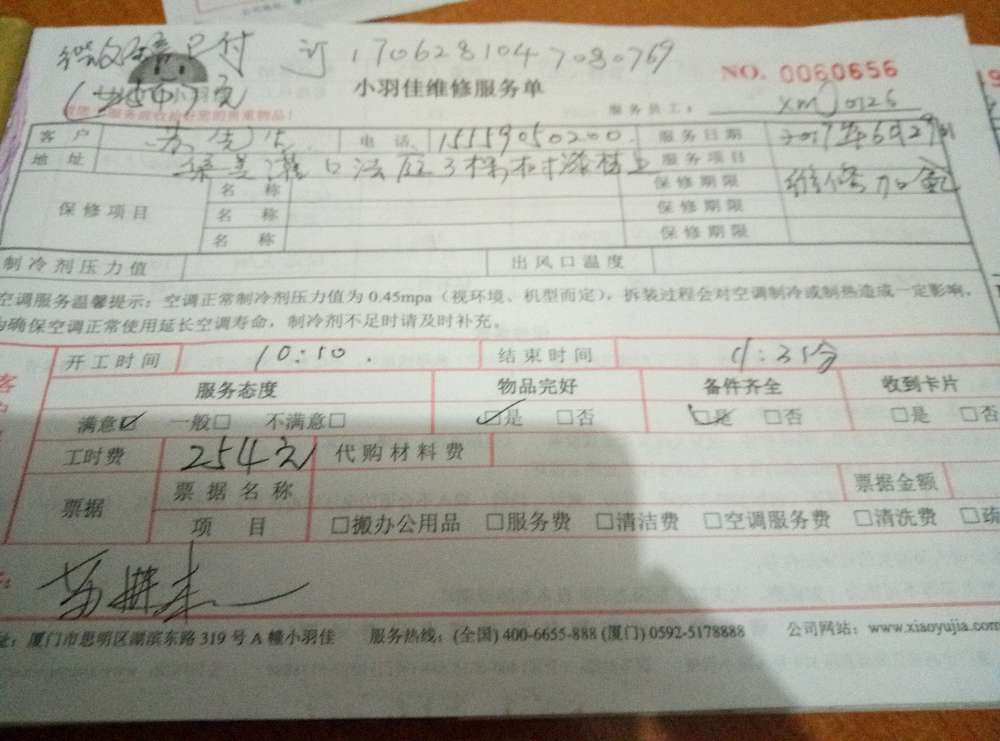 付 订 1706281047080769
NO. 0060656
小羽佳维修服务单
服务员工: xmj0126
客户 电话 15559050200 服务日期 2017年6月29日
地址 灌口 服务项目 维修加氟
保修项目 名称 保修期限
名称 保修期限
名称 保修期限
制冷剂压力值 出风口温度
空调服务温馨提示:空调正常制冷剂压力值为0.45mpa(视环境、机型而定),拆装过程会对空调制冷或制热造成一定影响,
为确保空调正常使用延长空调寿命,制冷剂不足时请及时补充。
开工时间 10:10. 结束时间 11:35分
服务态度 物品完好 备件齐全 收到卡片
满意☑ 一般□ 不满意□ ☑是 □否 ☑是 □否 □是 □否
工时费 254元 代购材料费
票据 票据名称 票据金额
项目 □搬办公用品 □服务费 □清洁费 □空调服务费 □清洗费 □疏
址:厦门市思明区湖滨东路319号A幢小羽佳 服务热线:(全国) 400-6655-888 (厦门) 0592-5178888 公司网站:www.xiaoyujia.com